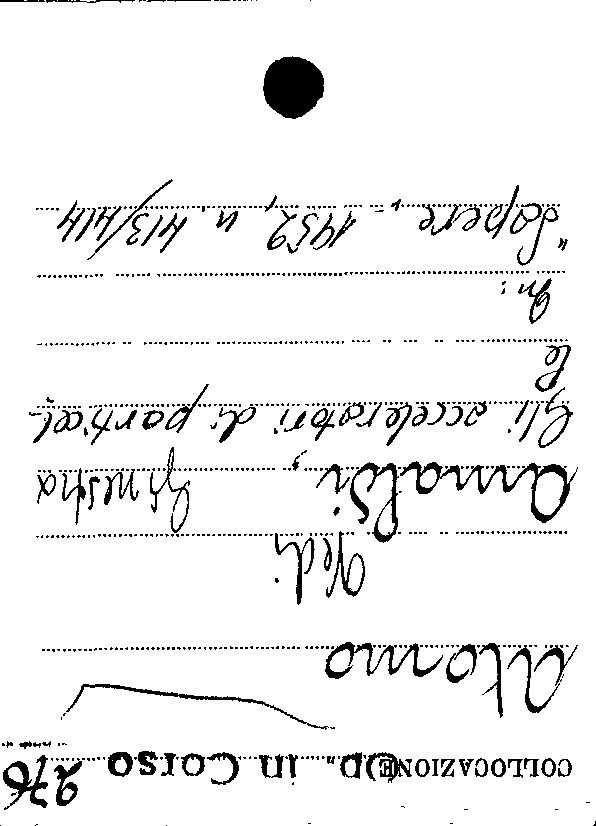 COLLOCAZIONE P. in Corso 276
Atomo
Vedi
Amaldi, Ginestra
Gli acceleratori di particel-
le
In:
"Sapere", 1952, n. 413/414